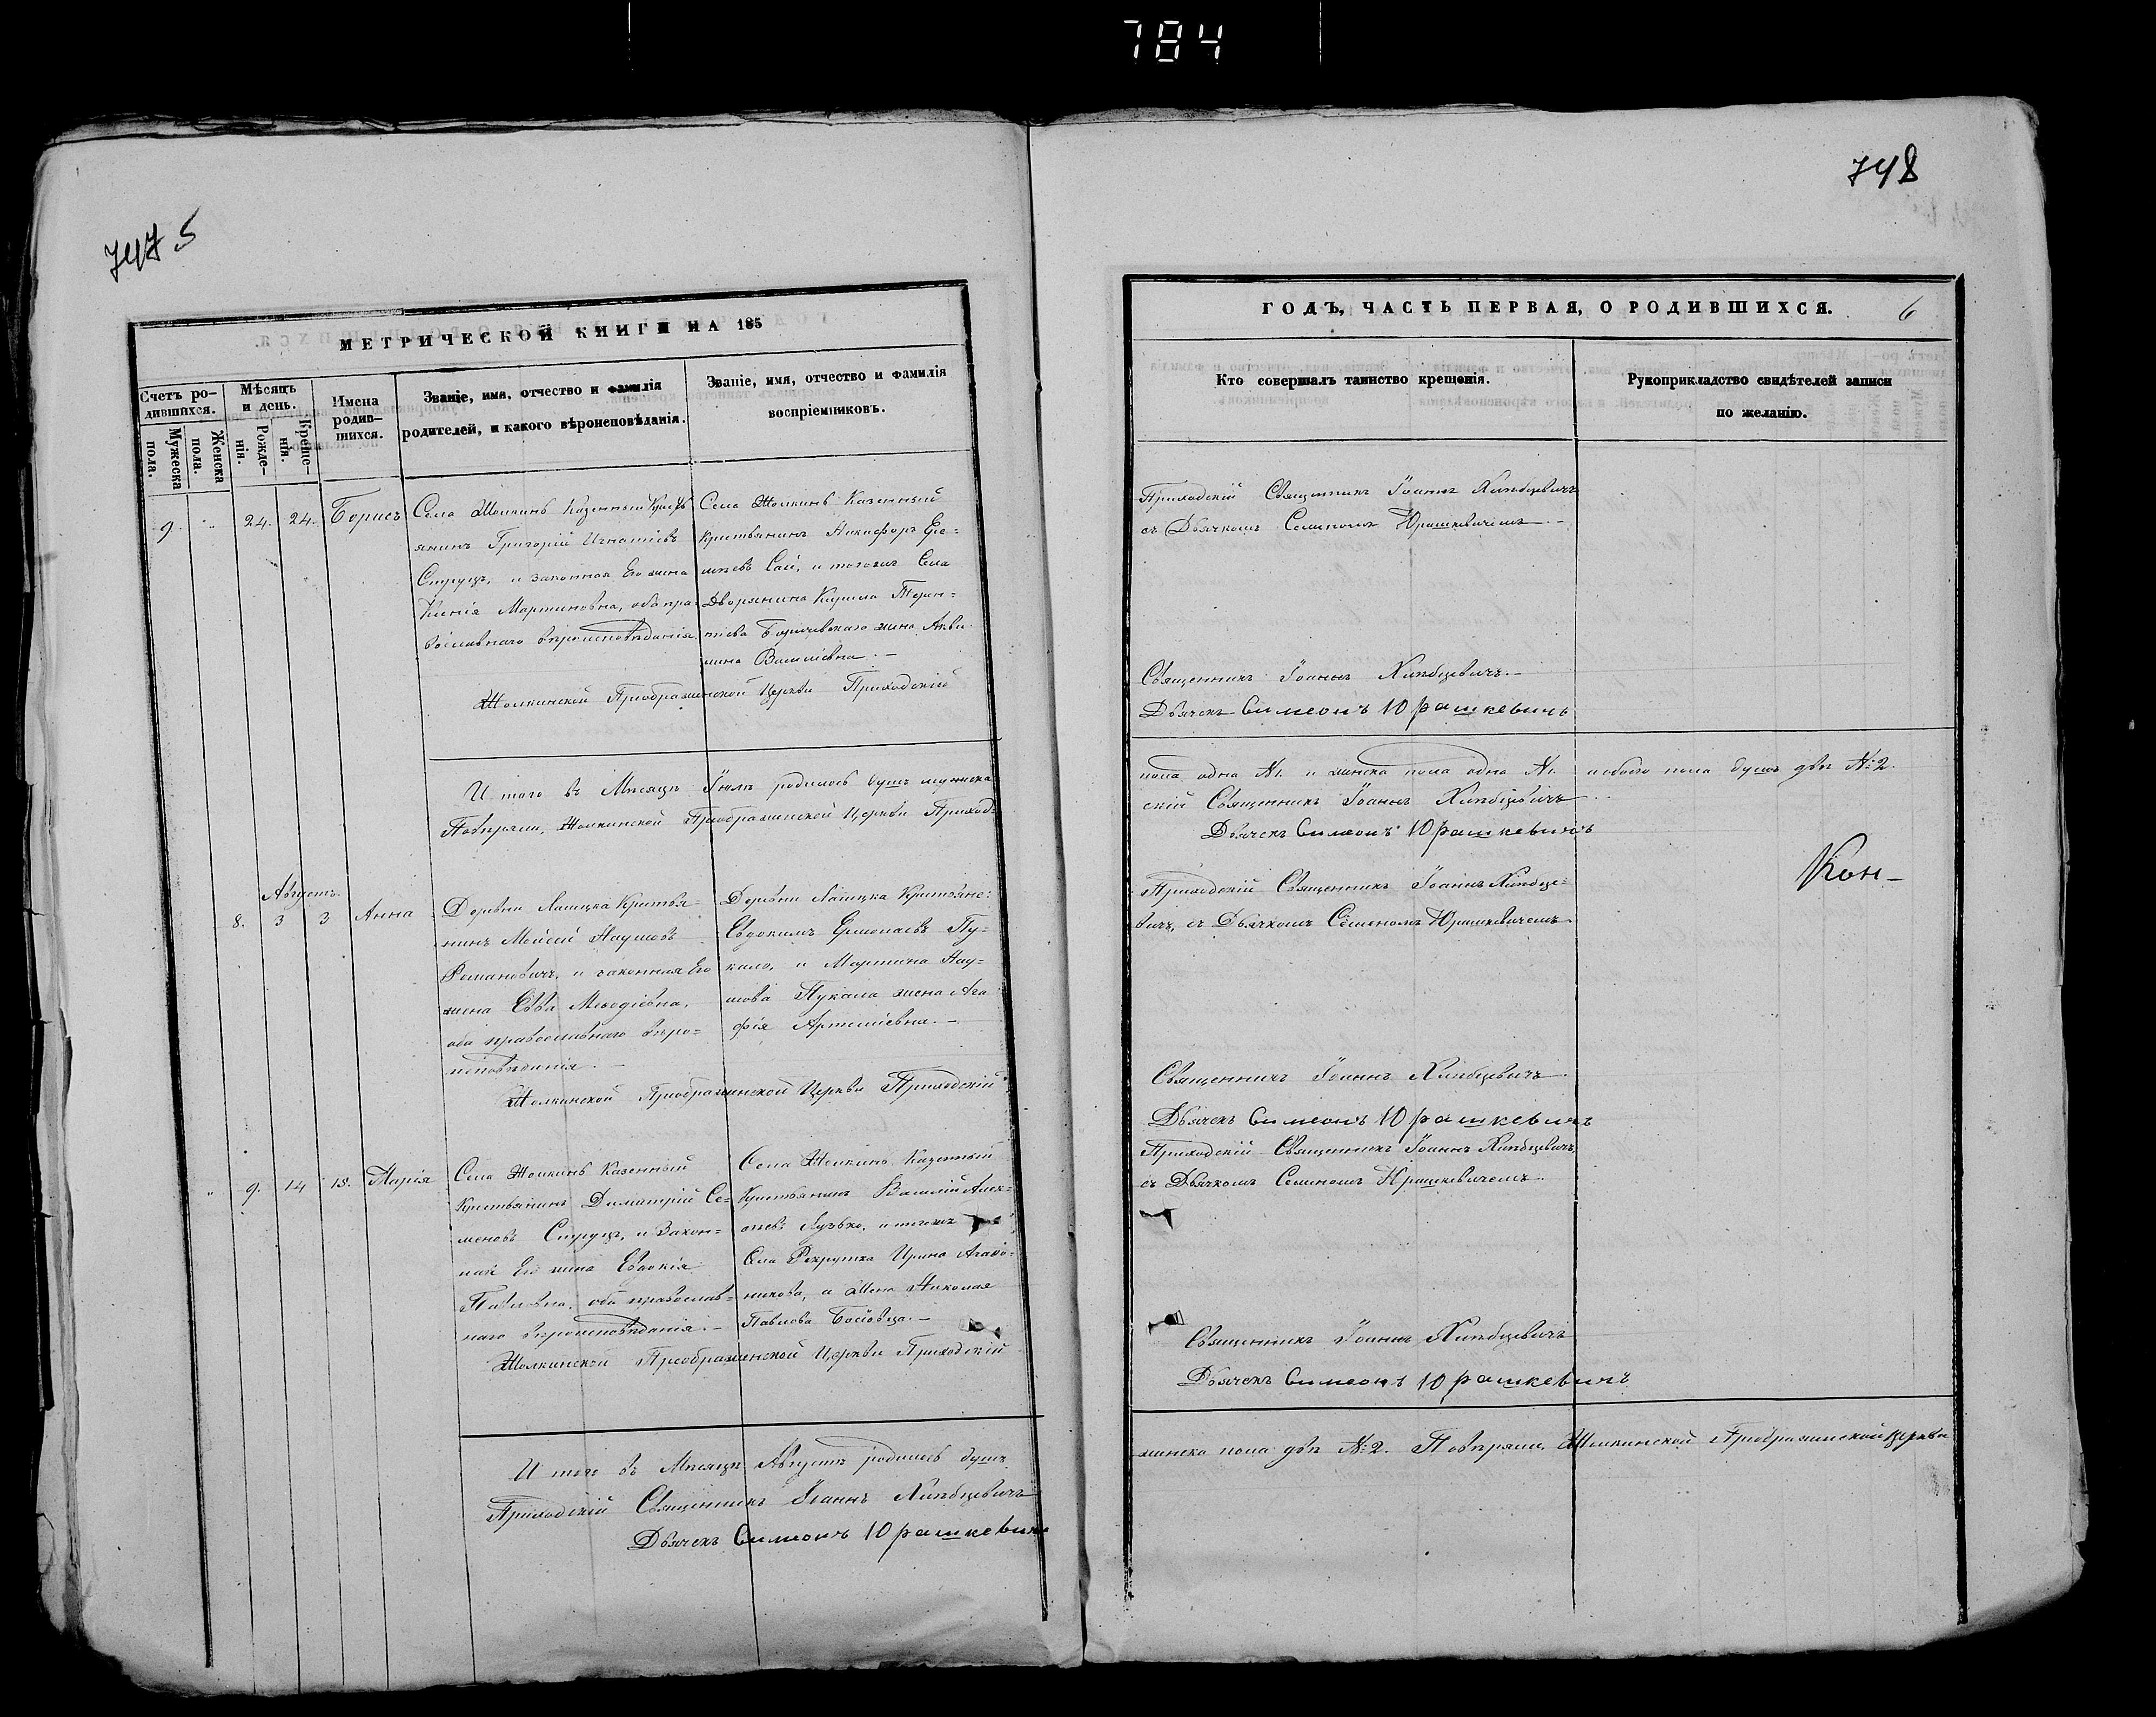 784
747 5
МЕТРИЧЕСКОЙ КНИГИ НА 185
Счетъ ро-
дившихся.
Мужеска
пола.
Женска
пола.
Мѣсяцъ
и день.
Рожде-
нія.
Креще-
нія.
Имена
родив-
шихся.
Званіе, имя, отчество и фамилія
родителей, и какого вѣроисповѣданія.
Званіе, имя, отчество и фамилія
воспріемниковъ.
9. " 24. 24. Борисъ
Села Жолкинь Казенный
янинъ Григорій Игнатіевъ
Струцъ, и законная Его жена
Ксенія Мартиновна, оба пра-
вославнаго вѣроисповѣданія.
Села Жолкинь Казенный
крестьянинъ Никифоръ
Сай, и тогожъ Села
Дворянина Кирила
жена
Василіевна. —
Жолкинской Преображенской Церкви Приходскій
И того въ Мѣсяцѣ Іюлѣ родилось душъ мужеска
Повѣряли, Жолкинской Преображенской Церкви Приход-
Августъ.
8. 3 3 Анна
Деревни Крестья-
нинъ Моисей Наумовъ
Романовичъ, и законная Его
жена Евва Меѳодіевна,
оба православнаго вѣро-
исповѣданія. —
Деревни Крестьяне:
Евдокимъ Пу-
кало, и Мартина Нау-
мова Пукала жена Ага-
фія Артеміевна. —
Жолкинской Преображенской Церкви Приходскій
" 9. 14 15. Марія
Села Жолкинь Казенный
Крестьянинъ Димитрій Се-
меновъ Струцъ, и Закон-
ная Его жена Евдокія
Павловна, оба православ-
наго вѣроисповѣданія. —
Села Жолкинь Казенный
Крестьянинъ Василій
и тогожъ
Села Рекрутка Ирина
а Жена Николая
Павлова
Жолкинской Преображенской Церкви Приходскій
И того въ Мѣсяцѣ Августѣ родилось душъ
Приходскій Священникъ Іоаннъ Хлѣбцевичъ
Дьячекъ Симеонъ Юрашкевичъ
748
ГОДЪ, ЧАСТЬ ПЕРВАЯ, О РОДИВШИХСЯ.
6
Кто совершалъ таинство крещенія.
Рукоприкладство свидѣтелей записи
по желанію.
Приходскій Священникъ Іоаннъ Хлѣбцевичъ
съ Дьячкомъ Семеномъ Юрашкевичемъ. —
Священникъ Іоаннъ Хлѣбцевичъ. —
Дьячекъ Симеонъ Юрашкевичъ
пола одна №1. и женска пола одна №1. и обоего пола душъ двѣ №2.
скій Священникъ Іоаннъ Хлѣбцевичъ
Дьячекъ Симеонъ Юрашкевичъ
Кон-
Приходскій Священникъ Іоаннъ Хлѣбце-
вичъ, съ Дьячкомъ Семеномъ Юрашкевичемъ
Священникъ Іоаннъ Хлѣбцевичъ
Дьячекъ Симеонъ Юрашкевичъ
Приходскій Священникъ Іоаннъ Хлѣбцевичъ,
съ Дьячкомъ Семеномъ Юрашкевичемъ.
Священникъ Іоаннъ Хлѣбцевичъ
Дьячекъ Симеонъ Юрашкевичъ
женска пола двѣ №2. Повѣряли, Жолкинской Преображенской Церкви